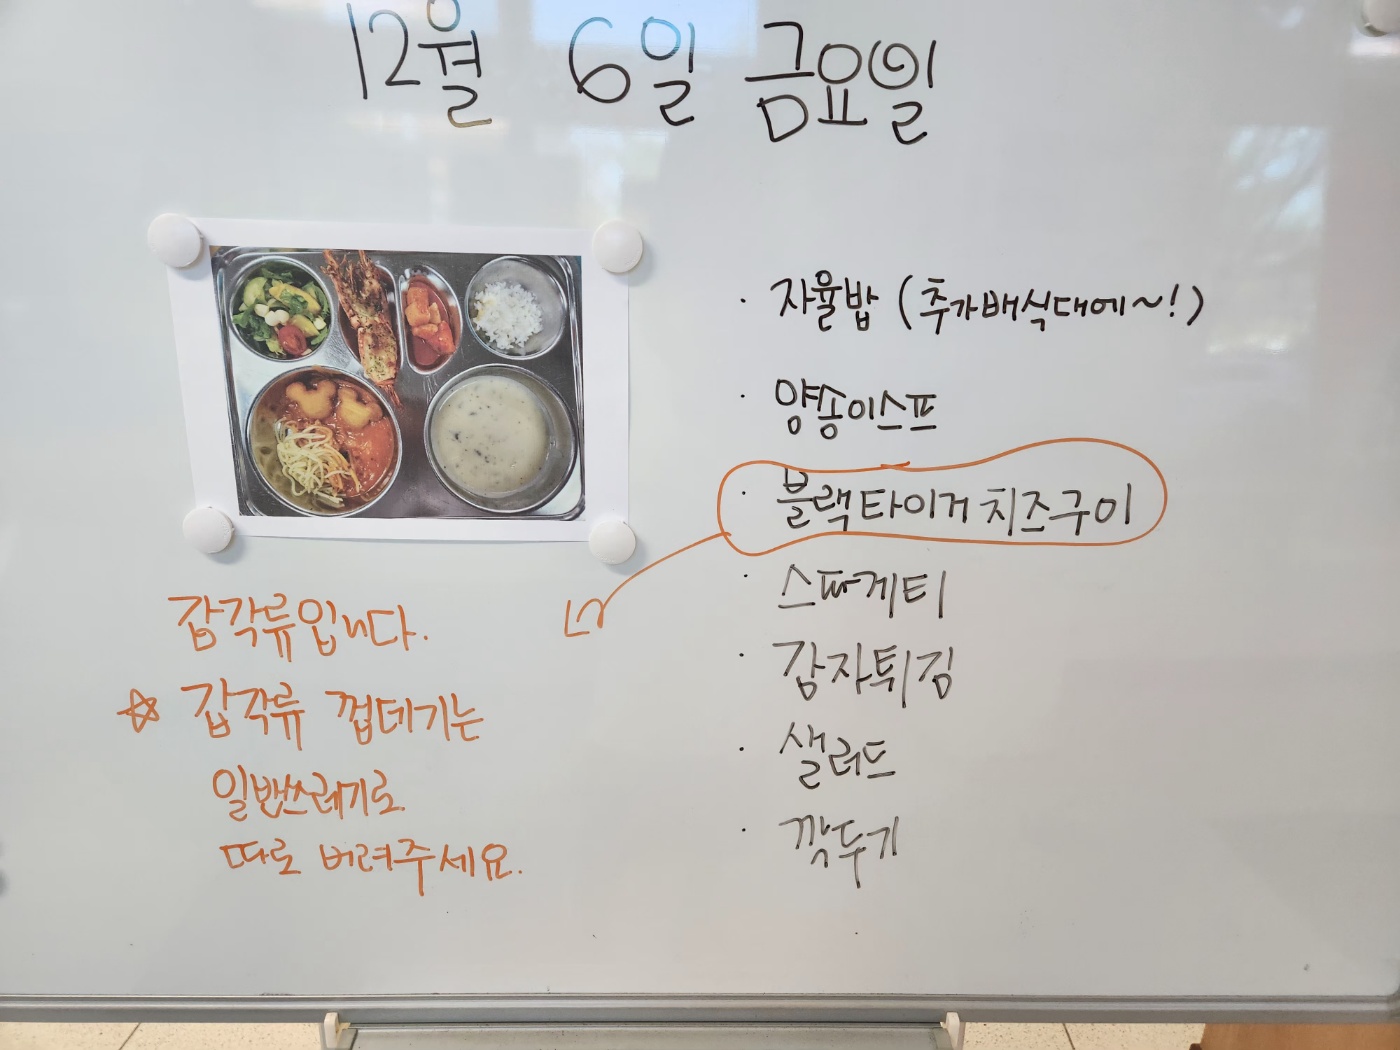 12월 6일 금요일
· 자율밥 (추가배식대에~!)
· 양송이스프
· 블랙타이거치즈구이
· 스파게티
· 감자튀김
· 샐러드
· 깍두기
갑각류입니다.
☆ 갑각류 껍데기는
일반쓰레기로
따로 버려주세요.